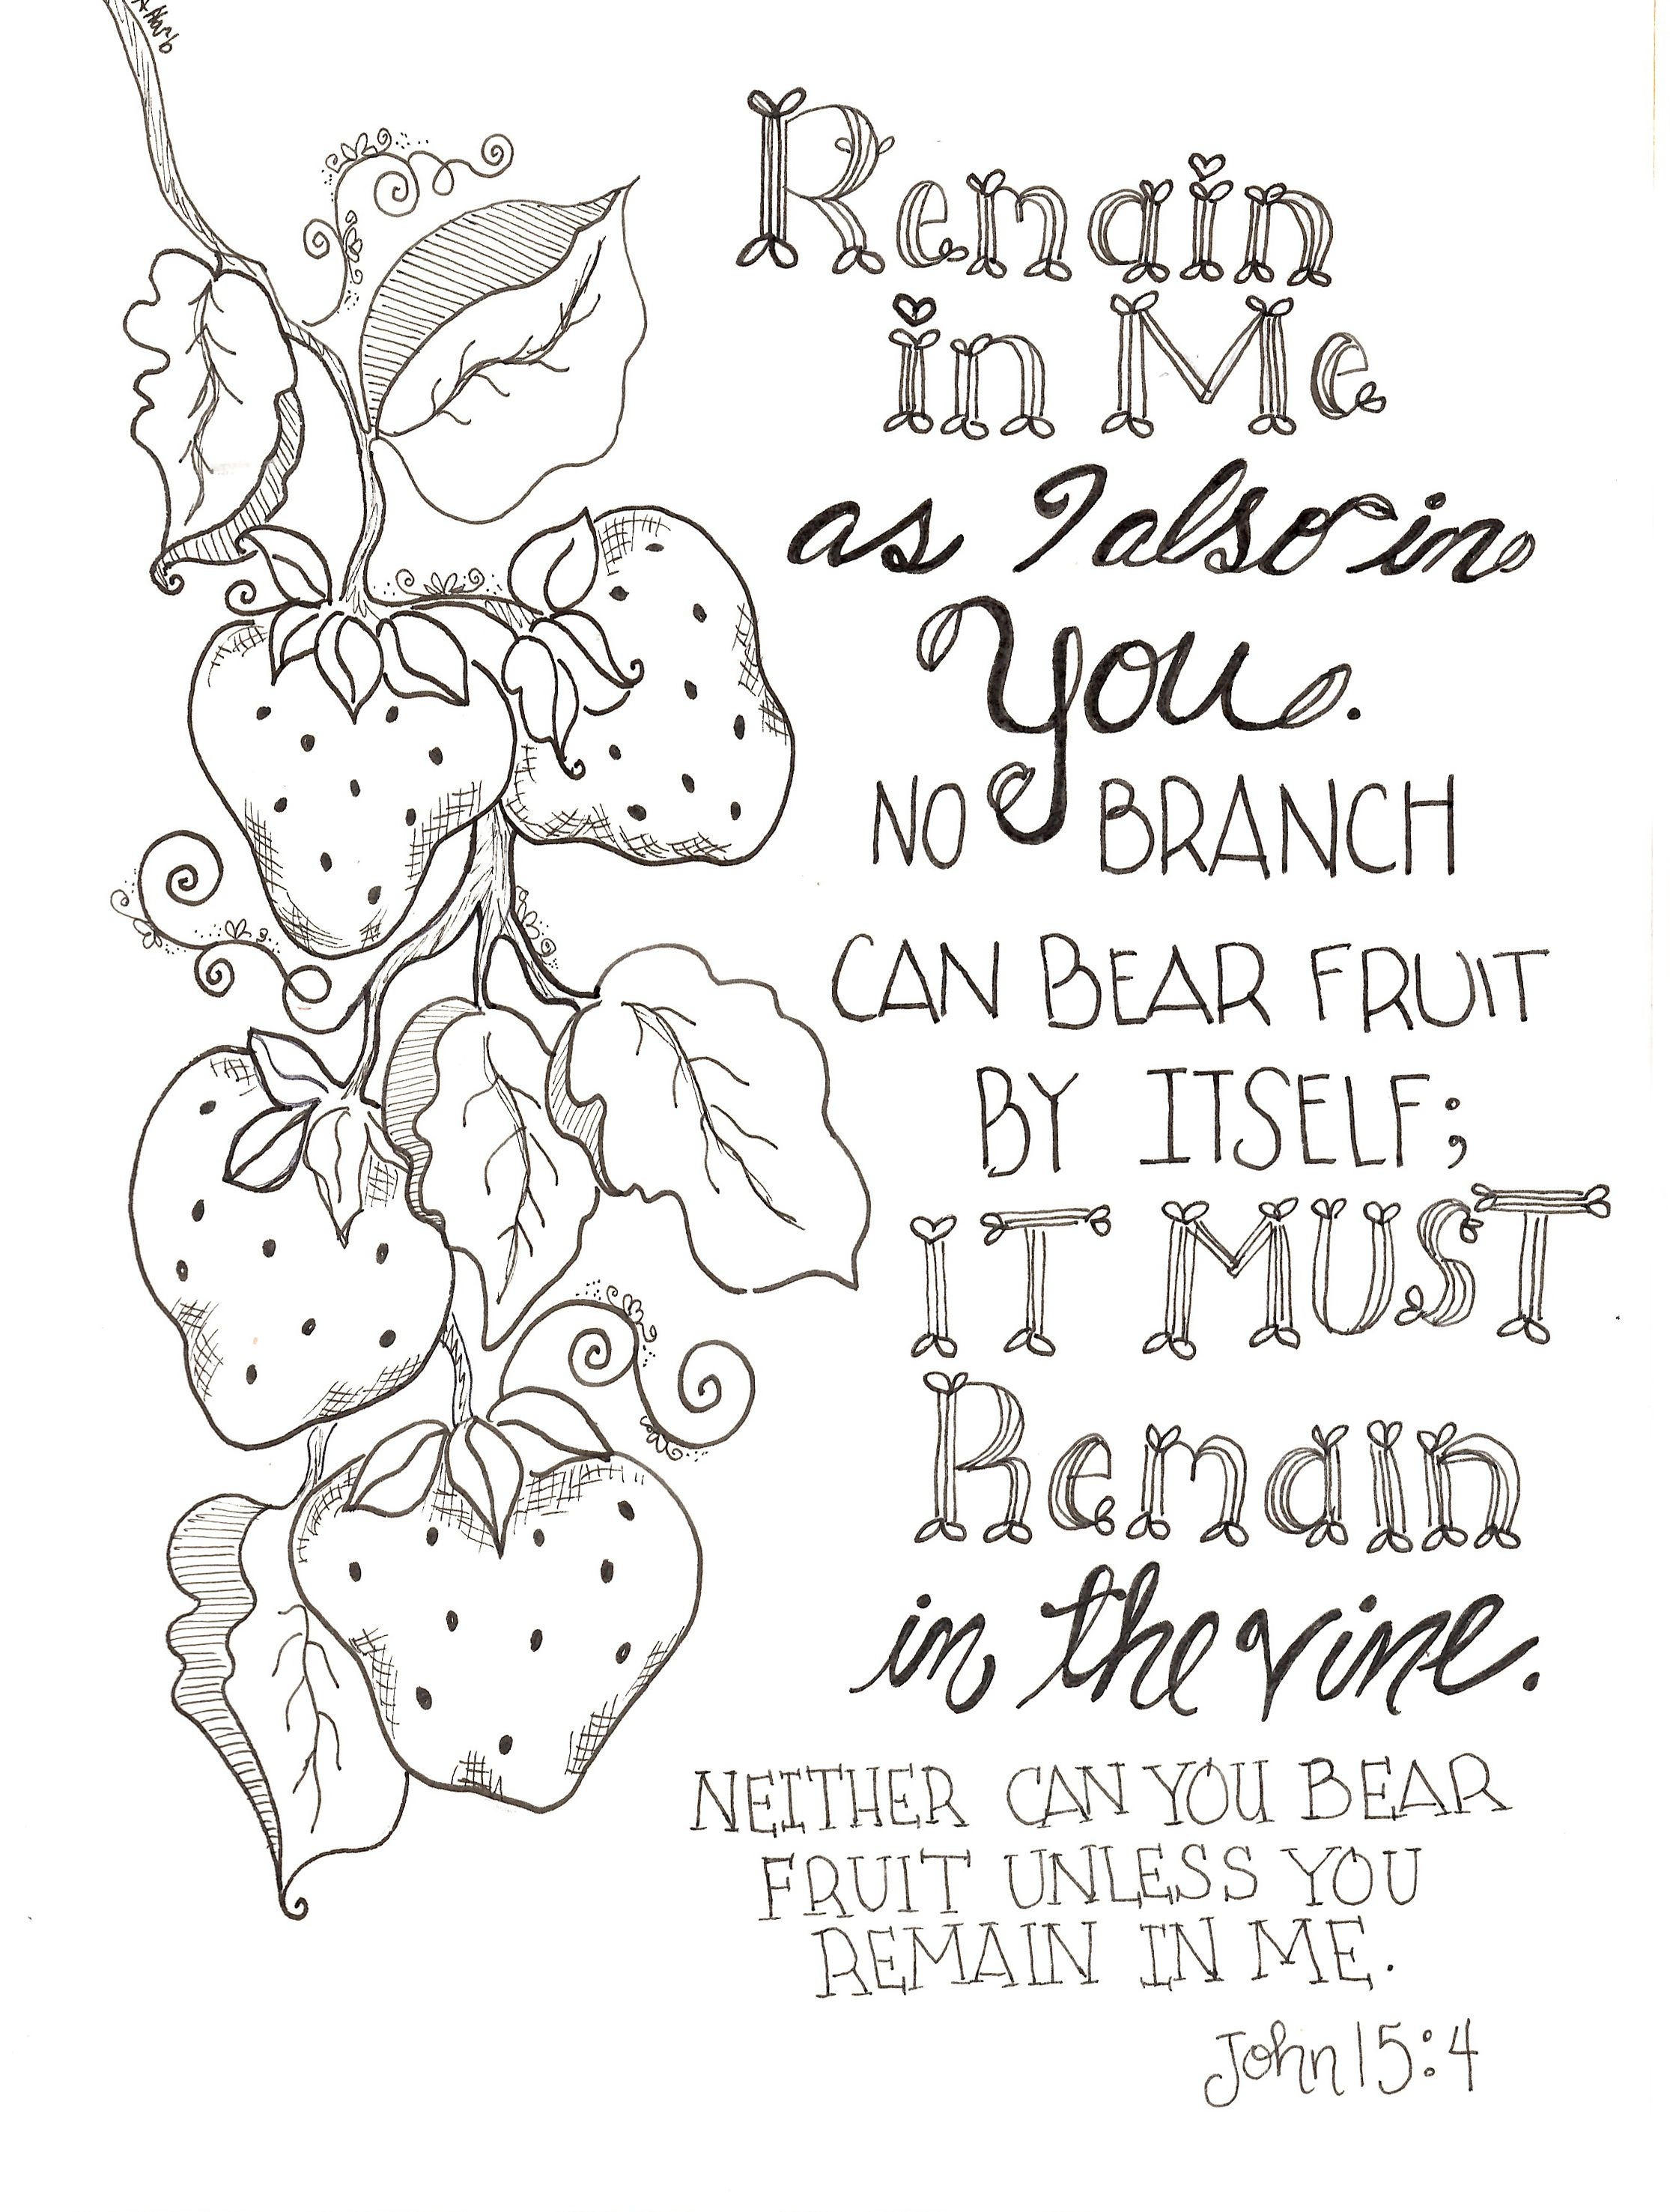 Remain
in Me
as I also in
You.
NO BRANCH
CAN BEAR FRUIT
BY ITSELF;
IT MUST
Remain
in the vine.
NEITHER CAN YOU BEAR
FRUIT UNLESS YOU
REMAIN IN ME.
John 15:4